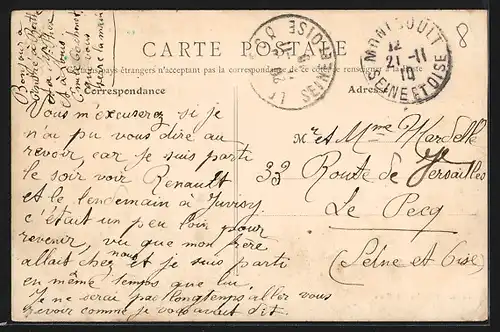 CARTE POSTALE
pays étrangers n'acceptant pas la correspondance de ce côté se renseigner à la
Correspondance
Adresse
MONTSOULT
12
21-11
10
SEINE ET OISE
SEINE-ET-OISE
Bonjour à
Vous m'excuserez si je
n'ai pu vous dire au
revoir, car je suis parti
le soir voir Renault
et le lendemain à Juvisy
c'était un peu loin pour
revenir, vu que mon frère
allait chez nous et je suis parti
en même temps que lui
Je ne serai pas longtemps aller vous
revoir comme je vous avait dit.
Mr et Mme Hardelle
33 Route de Versailles
Le Pecq
(Seine et Oise)
8